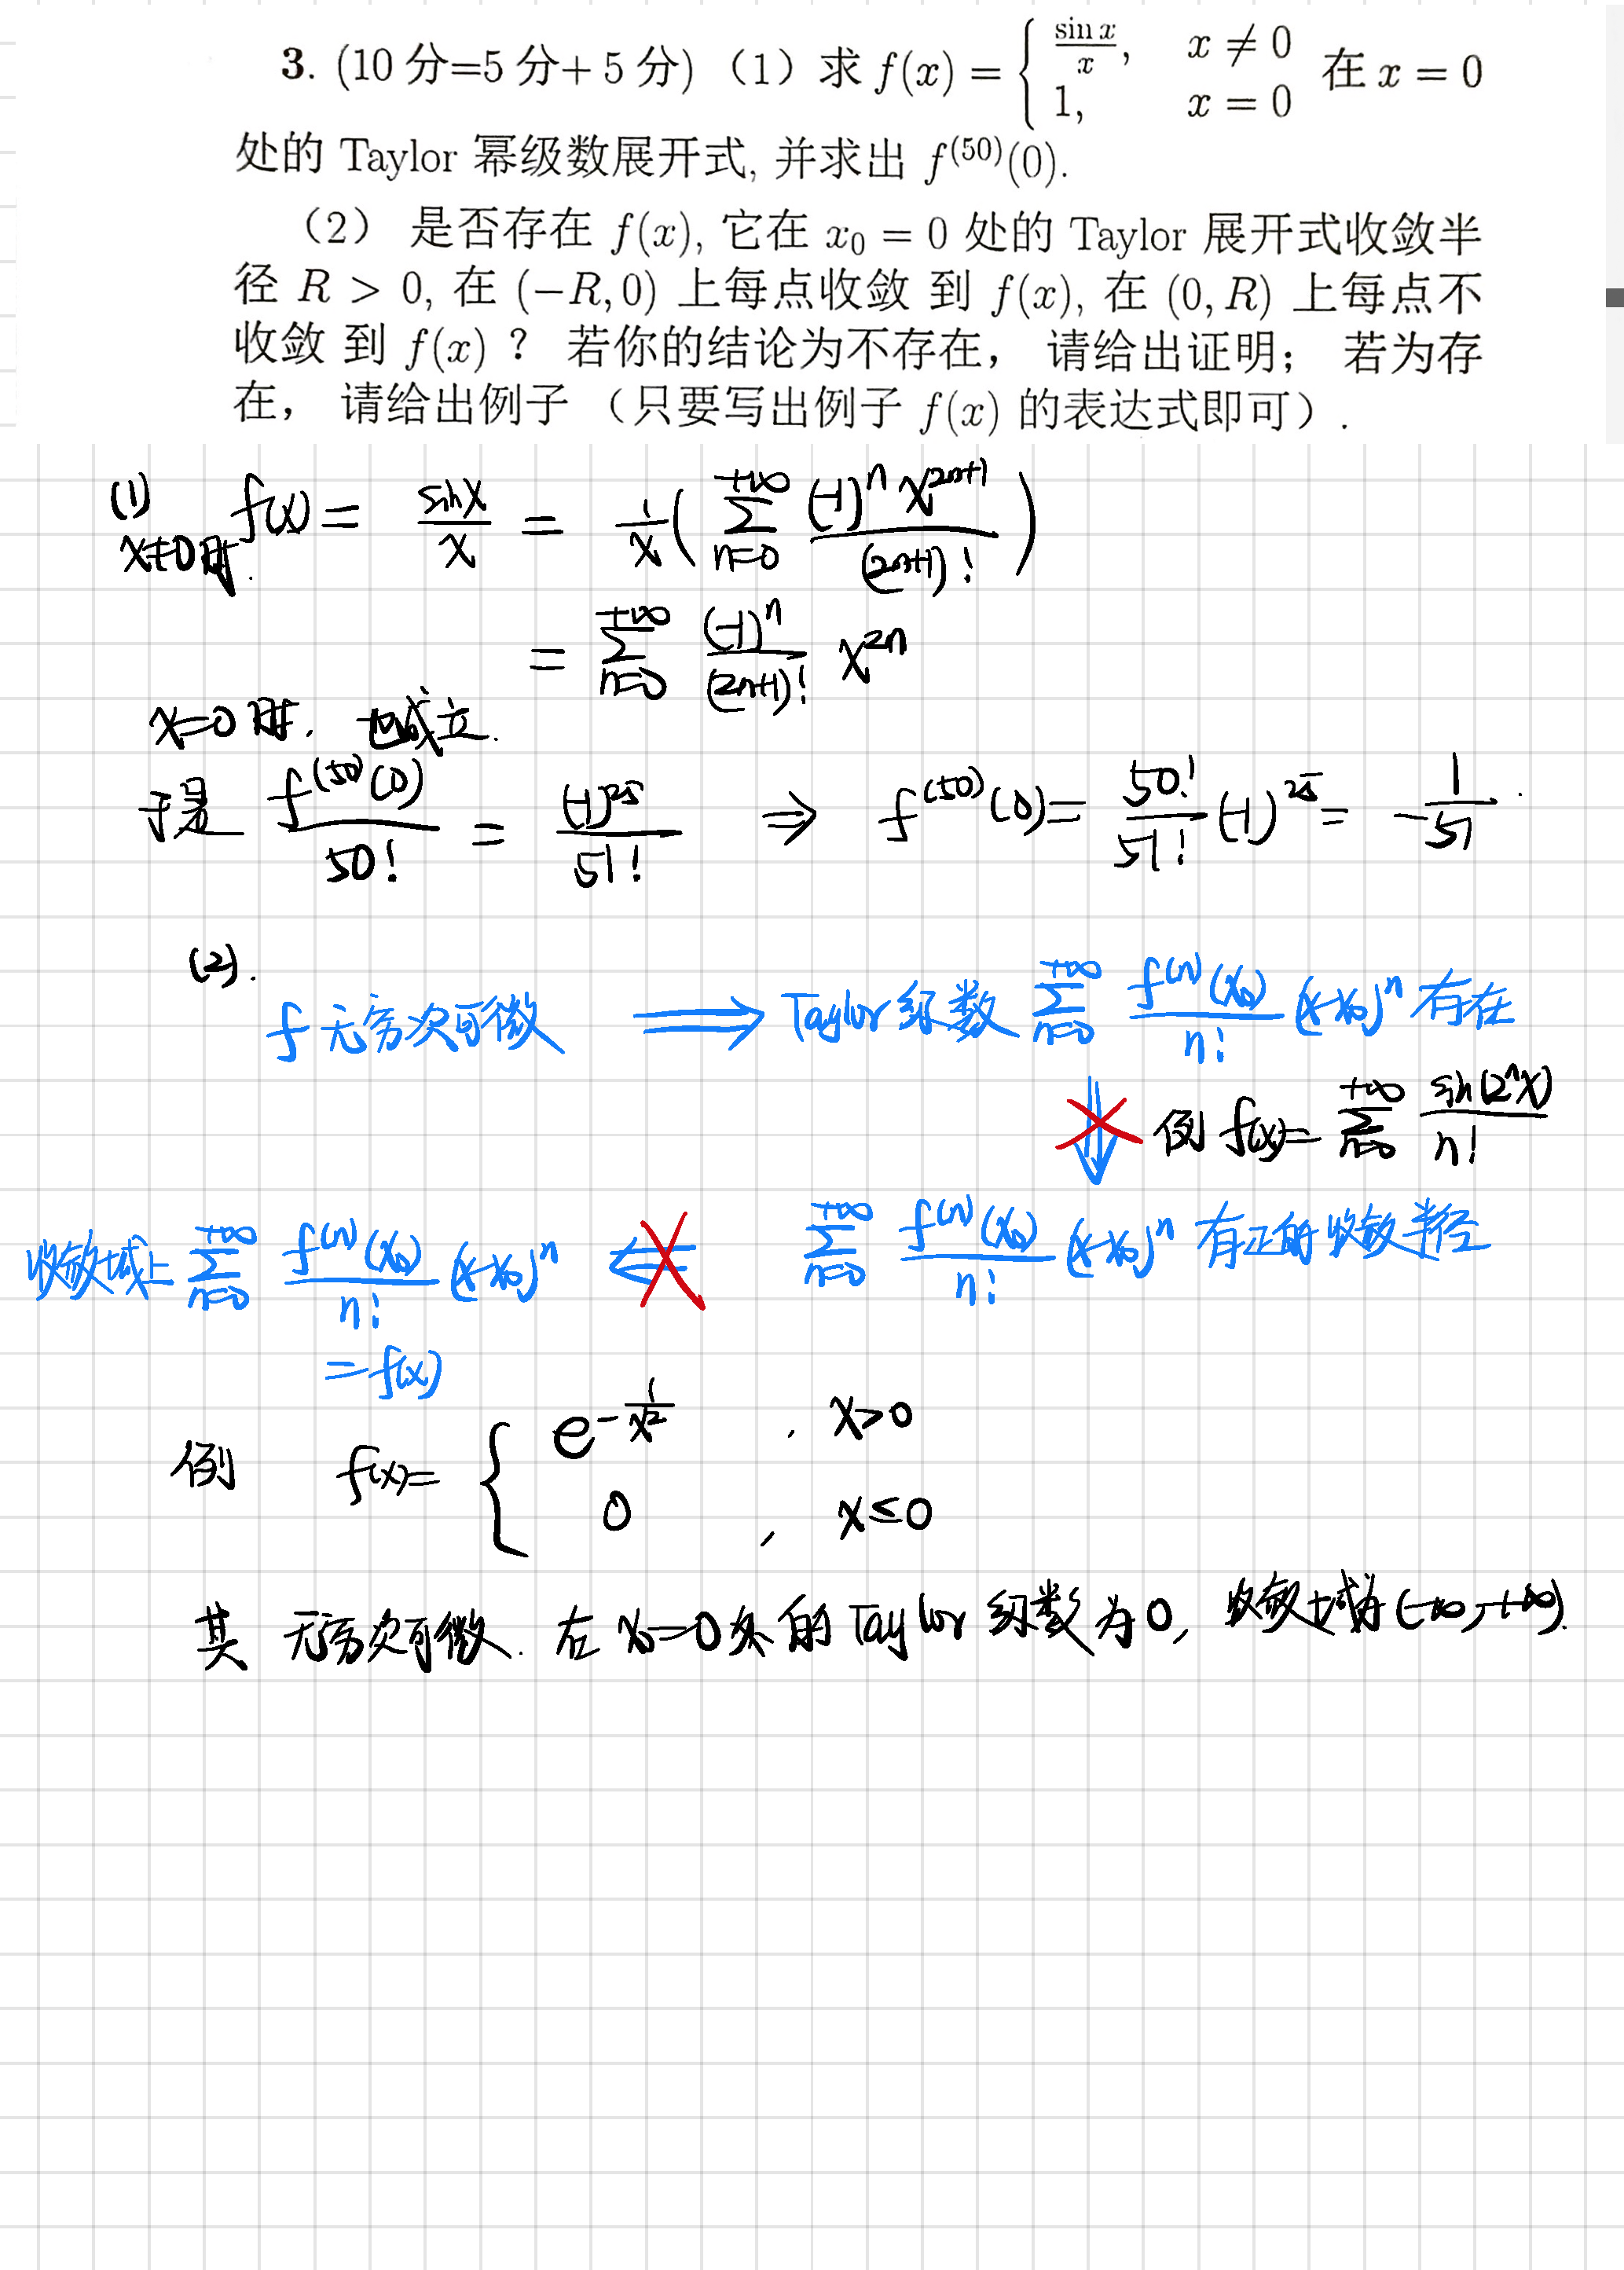 3. (10 分=5 分+ 5 分)（1）求 f(x) = { sin x / x, x ≠ 0 ; 1, x = 0 在 x = 0
处的 Taylor 幂级数展开式, 并求出 f^(50)(0).
（2） 是否存在 f(x), 它在 x₀ = 0 处的 Taylor 展开式收敛半
径 R > 0, 在 (−R, 0) 上每点收敛 到 f(x), 在 (0, R) 上每点不
收敛 到 f(x) ? 若你的结论为不存在， 请给出证明； 若为存
在， 请给出例子 （只要写出例子 f(x) 的表达式即可）.
(1) x≠0时. f(x) = sinx / x = 1/x ( ∑_{n=0}^{+∞} (-1)^n x^{2n+1} / (2n+1)! )
= ∑_{n=0}^{+∞} (-1)^n / (2n+1)! x^{2n}
x=0 时, 也成立.
于是 f^(50)(0) / 50! = (-1)^25 / 51! ⇒ f^(50)(0) = 50!/51! (-1)^25 = -1/51.
(2).
f 无穷次可微 ⟹ Taylor 级数 ∑_{n=0}^{+∞} f^(n)(x₀)/n! (x-x₀)^n 存在
例 f(x)= ∑_{n=0}^{+∞} sin(2^n x) / n!
收敛域上 ∑_{n=0}^{+∞} f^(n)(x₀)/n! (x-x₀)^n ⇐ ∑_{n=0}^{+∞} f^(n)(x₀)/n! (x-x₀)^n 有正的收敛半径
= f(x)
例 f(x)= { e^{-1/x²} , x>0
0 , x≤0
其 无穷次可微. 在 x₀=0 处的 Taylor 级数为 0, 收敛域为 (-∞,+∞).